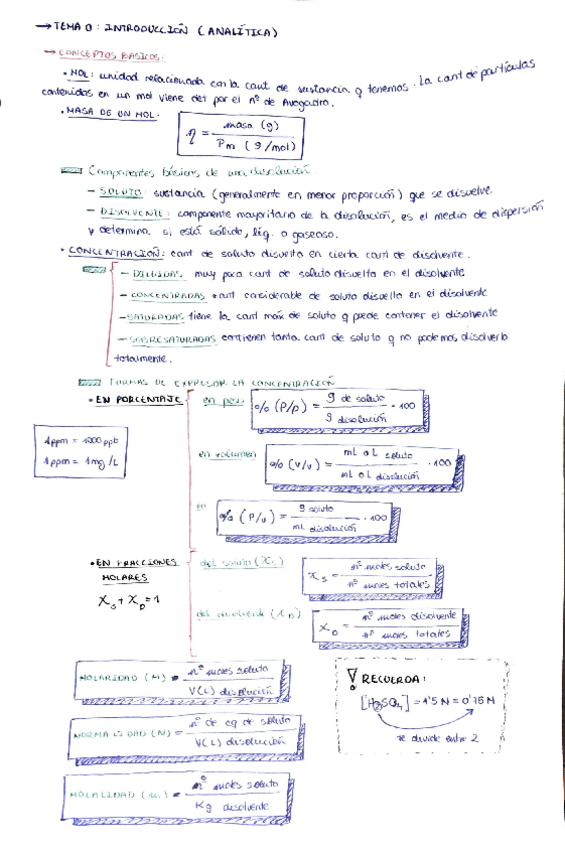 → TEMA 0: INTRODUCCIÓN (ANALÍTICA)
→ CONCEPTOS BÁSICOS:
• MOL: unidad relacionada con la cant de sustancia q tenemos. La cant de partículas
contenidas en un mol viene det por el nº de Avogadro.
• MASA DE UN MOL:
η = masa (g) / Pm (g/mol)
Componentes básicos de una disolución
– SOLUTO: sustancia (generalmente en menor proporción) que se disuelve.
– DISOLVENTE: componente mayoritario de la disolución, es el medio de dispersión
y determina si está sólido, líq. o gaseoso.
• CONCENTRACIÓN: cant de soluto disuelta en cierta cant de disolvente.
– DILUIDAS muy poca cant de soluto disuelta en el disolvente
– CONCENTRADAS cant considerable de soluto disuelto en el disolvente
– SATURADAS tiene la cant máx de soluto q puede contener el disolvente
– SOBRESATURADAS contienen tanta cant de soluto q no podemos disolverlo
totalmente.
FORMAS DE EXPRESAR LA CONCENTRACIÓN
• EN PORCENTAJE
en peso
% (P/P) = g de soluto / g disolución · 100
1ppm = 1000 ppb
1ppm = 1mg/L
en volumen
% (V/V) = mL o L soluto / mL o L disolución · 100
en
% (P/V) = g soluto / mL disolución · 100
• EN FRACCIONES
MOLARES
Xs + XD = 1
del soluto (Xs)
Xs = nº moles soluto / nº moles totales
del disolvente (XD)
XD = nº moles disolvente / nº moles totales
MOLARIDAD (M) = nº moles soluto / V(L) disolución
NORMALIDAD (N) = nº de eq de soluto / V(L) disolución
MOLALIDAD (m) = nº moles soluto / Kg disolvente
! RECUERDA:
[H2SO4] = 1'5 N = 0'75 M
se divide entre 2